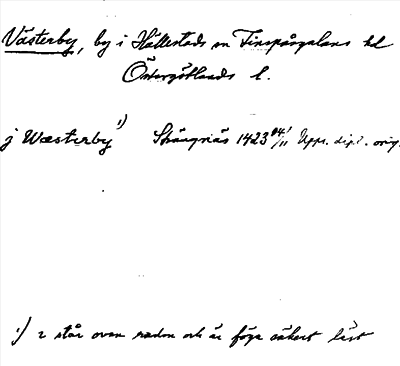 Västerby, by i Hällestads sn Finspångaläns hd
Östergötlands l.
j Wæsterby 1) Strängnäs 1423 24/11 Upps. dipl. orig.
1) r står ovan raden och är föga säkert läst